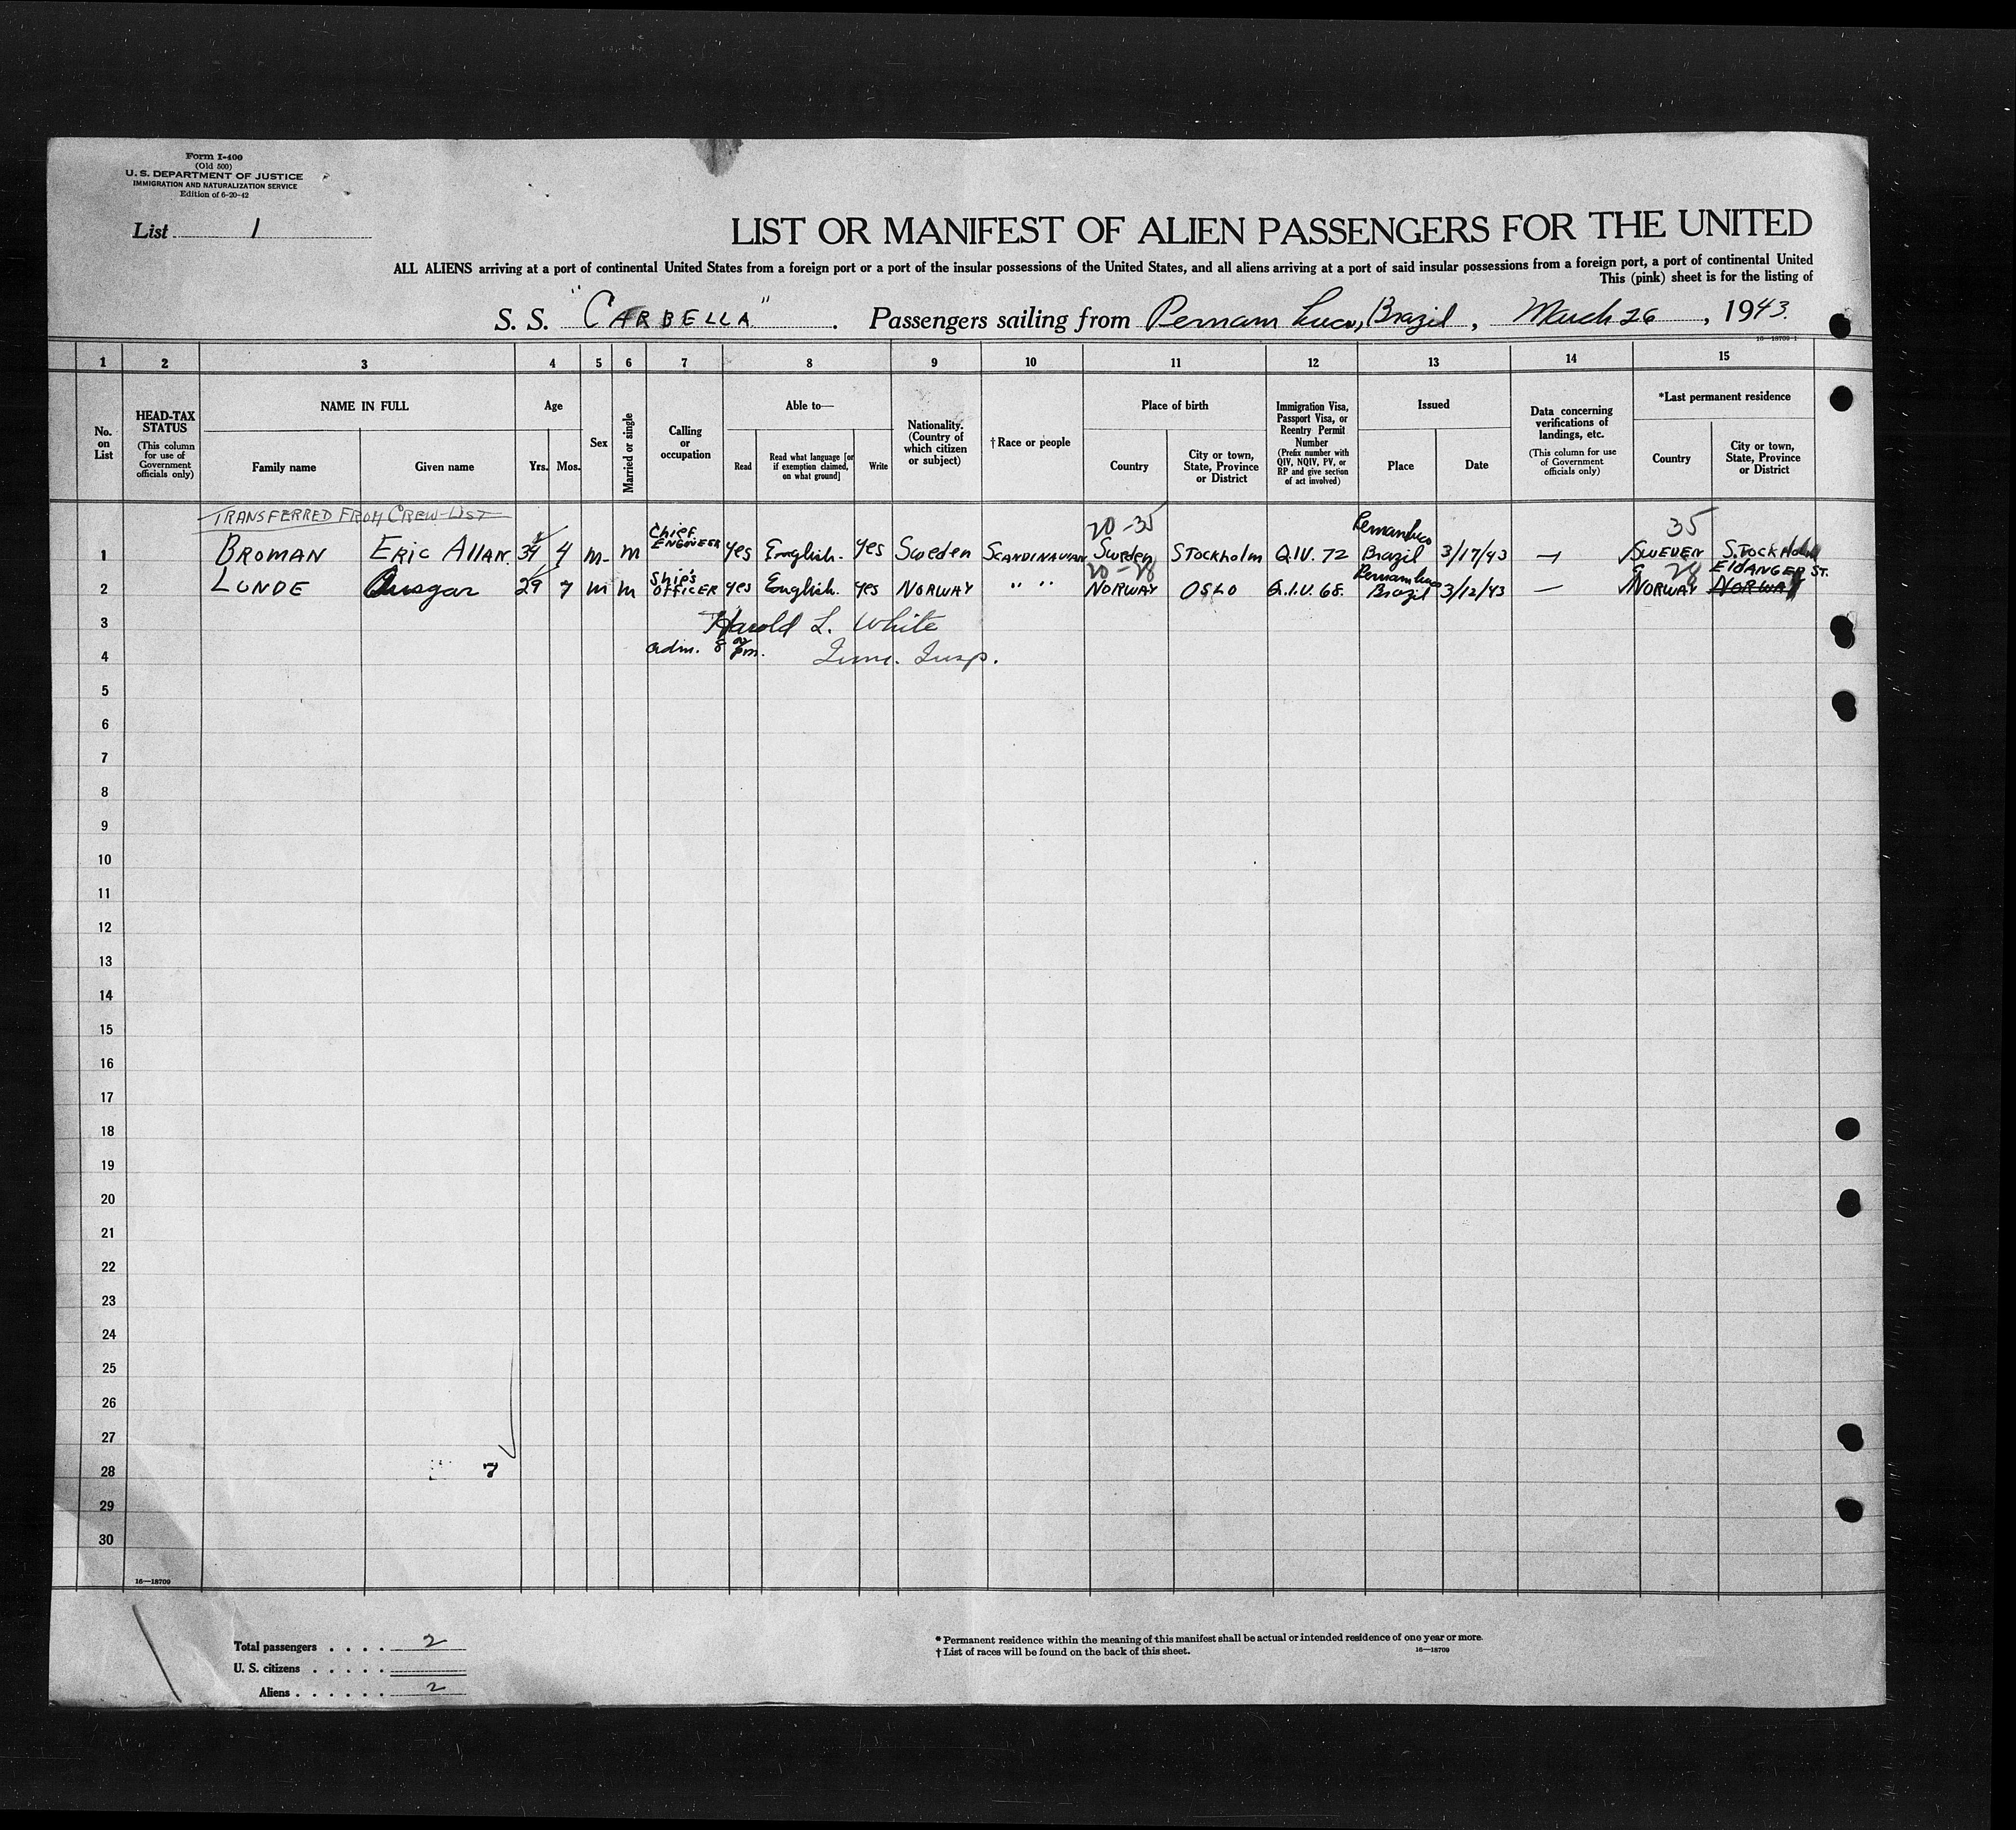 Form I-400
(Old 500)
U. S. DEPARTMENT OF JUSTICE
IMMIGRATION AND NATURALIZATION SERVICE
Edition of 6-20-42
List 1
LIST OR MANIFEST OF ALIEN PASSENGERS FOR THE UNITED
ALL ALIENS arriving at a port of continental United States from a foreign port or a port of the insular possessions of the United States, and all aliens arriving at a port of said insular possessions from a foreign port, a port of continental United
This (pink) sheet is for the listing of
S. S. "CARBELLA". Passengers sailing from Pernam buco, Brazil, March 26, 1943.
16—18709-1
1 2 3 4 5 6 7 8 9 10 11 12 13 14 15
No. on List
HEAD-TAX STATUS
(This column for use of Government officials only)
NAME IN FULL
Family name
Given name
Age
Yrs. Mos.
Sex
Married or single
Calling or occupation
Able to—
Read
Read what language [or if exemption claimed, on what ground]
Write
Nationality. (Country of which citizen or subject)
† Race or people
Place of birth
Country
City or town, State, Province or District
Immigration Visa, Passport Visa, or Reentry Permit Number
(Prefix number with QIV, NQIV, PV, or RP and give section of act involved)
Issued
Place
Date
Data concerning verifications of landings, etc.
(This column for use of Government officials only)
*Last permanent residence
Country
City or town, State, Province or District
TRANSFERRED FROM CREW-LIST
20-35 35
1 BROMAN ERIC ALLAN. 34 4 m- m Chief ENGINEER yes English. yes Sweden SCANDINAVIAN Sweden STOCKholm Q.IV. 72 Pernambuco Brazil 3/17/43 — SWEDEN STOCKHolm
20-28 28
2 LUNDE Ansgar 29 7 m m Ship's OFFICER yes English. yes NORWAY " " NORWAY OSLO Q.I.V. 68. Pernambuco Brazil 3/12/43 — NORWAY EIDANGER ST. NORWAY
3 Harold L. White
4 adm. 8 pm. Imm. Insp.
5
6
7
8
9
10
11
12
13
14
15
16
17
18
19
20
21
22
23
24
25
26
27
28 7
29
30
16—18709
Total passengers . . . . 2
U. S. citizens . . . . .
Aliens . . . . . . 2
* Permanent residence within the meaning of this manifest shall be actual or intended residence of one year or more.
† List of races will be found on the back of this sheet. 16—18709